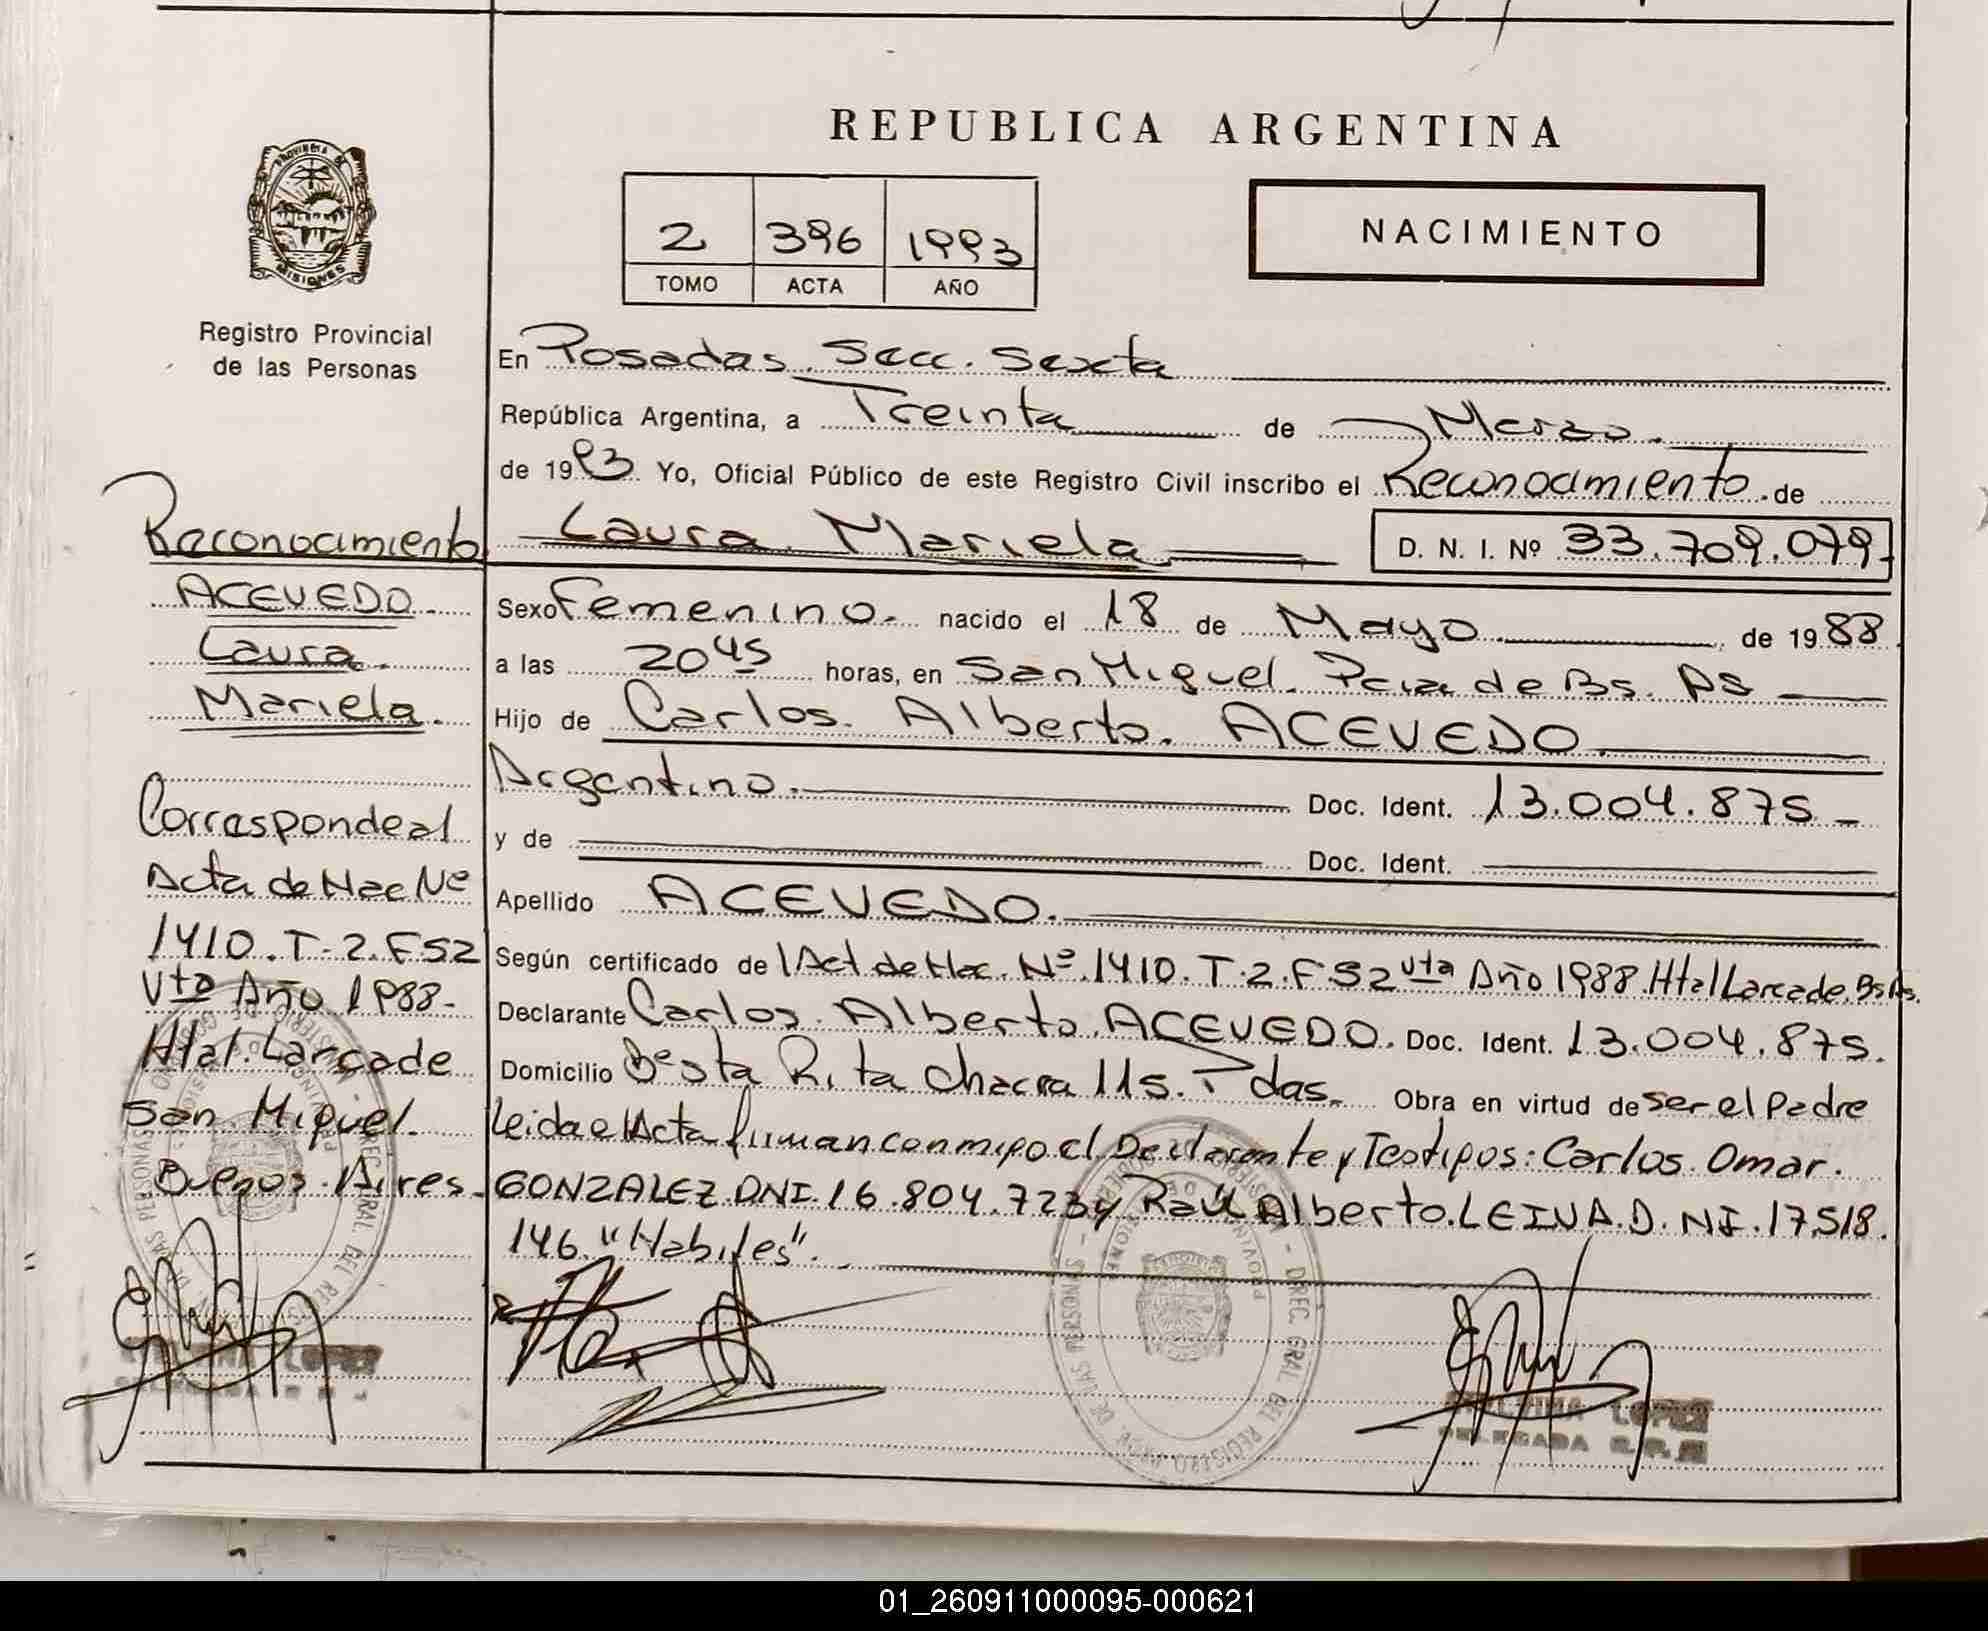 REPUBLICA ARGENTINA
PROVINCIA DE
MISIONES
Registro Provincial
de las Personas
2 396 1993
TOMO ACTA AÑO
NACIMIENTO
En Posadas. Secc. Sexta
República Argentina, a Treinta de Marzo.
de 1993 Yo, Oficial Público de este Registro Civil inscribo el Reconocimiento de
Laura Mariela D. N. I. Nº 33.709.079-
Sexo Femenino. nacido el 18 de Mayo de 1988
a las 20 45 horas, en San Miguel. Pcia de Bs. As
Hijo de Carlos. Alberto. ACEVEDO.
Argentino. Doc. Ident. 13.004.875-
y de Doc. Ident.
Apellido ACEVEDO.
Según certificado de 1 Act. de Nac. Nº 1410. T-2. F52 vta Año 1988. Htal Larcade. Bs As.
Declarante Carlos. Alberto. ACEVEDO. Doc. Ident. 13.004.875.
Domicilio Bº Sta Rita chacra 115. Pdas. Obra en virtud de ser el Padre
Leida el Acta firman conmigo el Declarante y Testigos: Carlos. Omar.
GONZALEZ. DNI. 16.804.723 y Raúl Alberto. LEIVA. D.NI. 17.518.
146. "Habiles".
Reconocimiento
ACEVEDO.
Laura.
Mariela.
Corresponde al
Acta de Nac Nº
1410. T-2. F52
vta Año 1988-
Htal. Larcade
San Miguel.
Buenos. Aires.
LOPEZ
DELEGADA
LOPEZ
DELEGADA
01_260911000095-000621